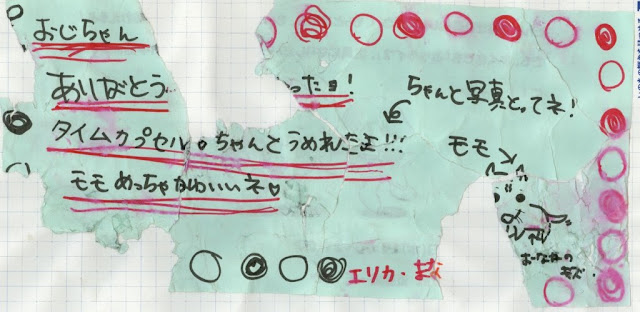 おじちゃん
ありがとう ったョ!
ちゃんと写真とってネ!
タイムカプセル。ちゃんとうめれたよ!!!
モモめっちゃかわいいネ
モモ
エリカ・まな